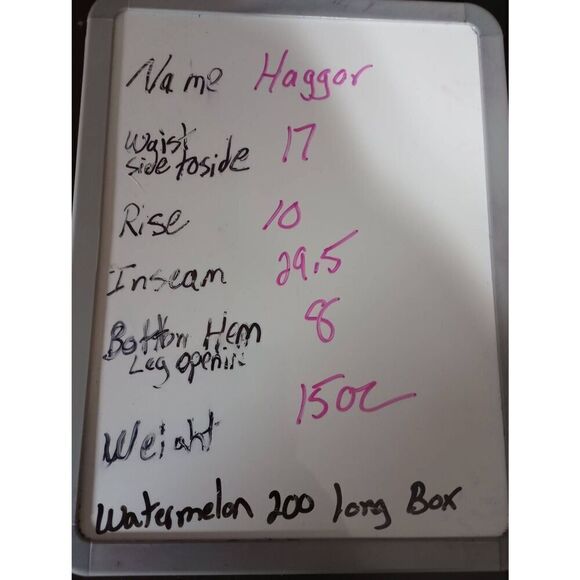 Name Haggar
Waist 17
side to side
Rise 10
Inseam 29.5
Bottom Hem 8
Leg opening
Weight 15oz
Watermelon 200 long Box